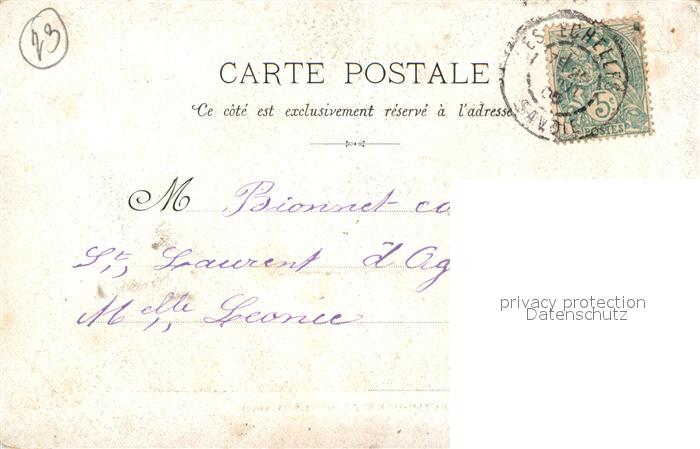 23
CARTE POSTALE
Ce côté est exclusivement réservé à l'adresse
ES ECHELLES
SAVOIE
5c
POSTES
M Bionnet co
St,, Laurent d'Ag
Melle,, Leonie
privacy protection
Datenschutz